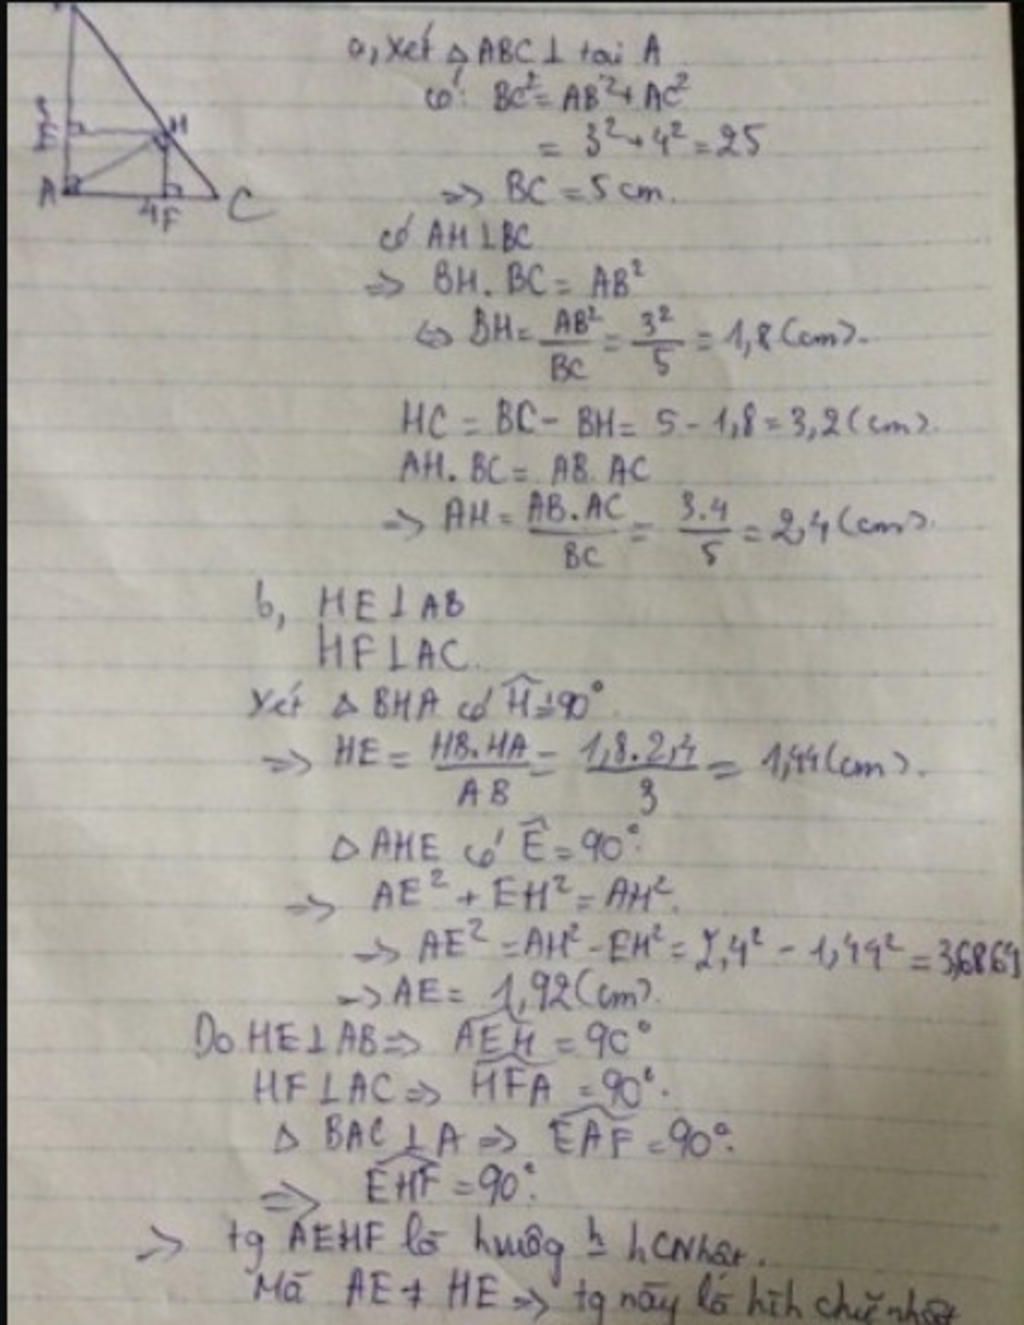 a, Xét △ ABC ⊥ tại A
có: BC² = AB² + AC²
= 3² + 4² = 25
=> BC = 5 cm.
có AH ⊥ BC
=> BH . BC = AB²
<=> BH = AB²/BC = 3²/5 = 1,8 (cm).
HC = BC - BH = 5 - 1,8 = 3,2 (cm).
AH . BC = AB . AC
=> AH = AB.AC/BC = 3.4/5 = 2,4 (cm).
b, HE ⊥ AB
HF ⊥ AC.
Xét △ BHA có Ĥ = 90°
=> HE = HB.HA/AB = 1,8.2,4/3 = 1,44 (cm).
△ AHE có Ê = 90°.
=> AE² + EH² = AH².
=> AE² = AH² - EH² = 2,4² - 1,44² = 3,6864
=> AE = 1,92 (cm).
Do HE ⊥ AB => AEH = 90°
HF ⊥ AC => HFA = 90°.
△ BAC ⊥ A => EAF = 90°.
=> EHF = 90°.
=> tg AEHF là h CNhật.
Mà AE ≠ HE => tg này là hìh chữ nhật
E
H
A
4
F
C